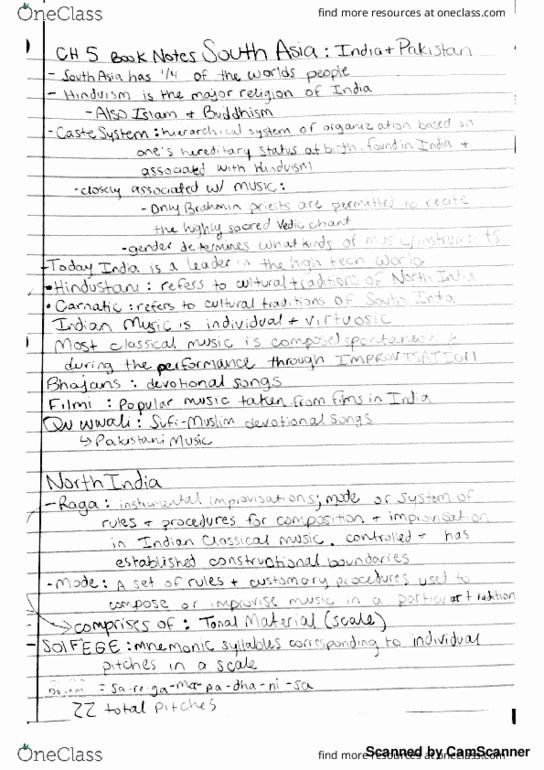 OneClass
find more resources at oneclass.com
CH 5 Book Notes South Asia: India + Pakistan
- South Asia has 1/4 of the worlds people
- Hinduism is the major religion of India
- Also Islam + Buddhism
- Caste System: hierarchical system of organization based on
one's hereditary status at birth, found in India +
associated with Hinduism
- closely associated w/ music:
- Only Brahmin priests are permitted to recite
the highly sacred Vedic chant
- gender determines what kinds of music/instruments
- Today India is a leader in the high tech world
• Hindustani: refers to cultural traditions of North India
• Carnatic: refers to cultural traditions of South
Indian Music is individual + virtuosic
Most classical music is composed
during the performance through IMPROVISATION
Bhajans: devotional songs
Filmi: Popular music taken from films in India
Quwwali: Sufi-Muslim devotional songs
↳ Pakistani Music
North India
- Raga: instrumental improvisations; mode or system of
rules + procedures for composition + improvisation
in Indian Classical music. controlled + has
established constructional boundaries
- Mode: A set of rules + customary procedures used to
compose or improvise music in a
→ comprises of: Tonal Material (scale)
- SOlFEGE: mnemonic syllables corresponding to individual
pitches in a scale
= sa-re-ga-ma-pa-dha-ni-sa
22 total pitches
OneClass
find more resources at oneclass.com
Scanned by CamScanner